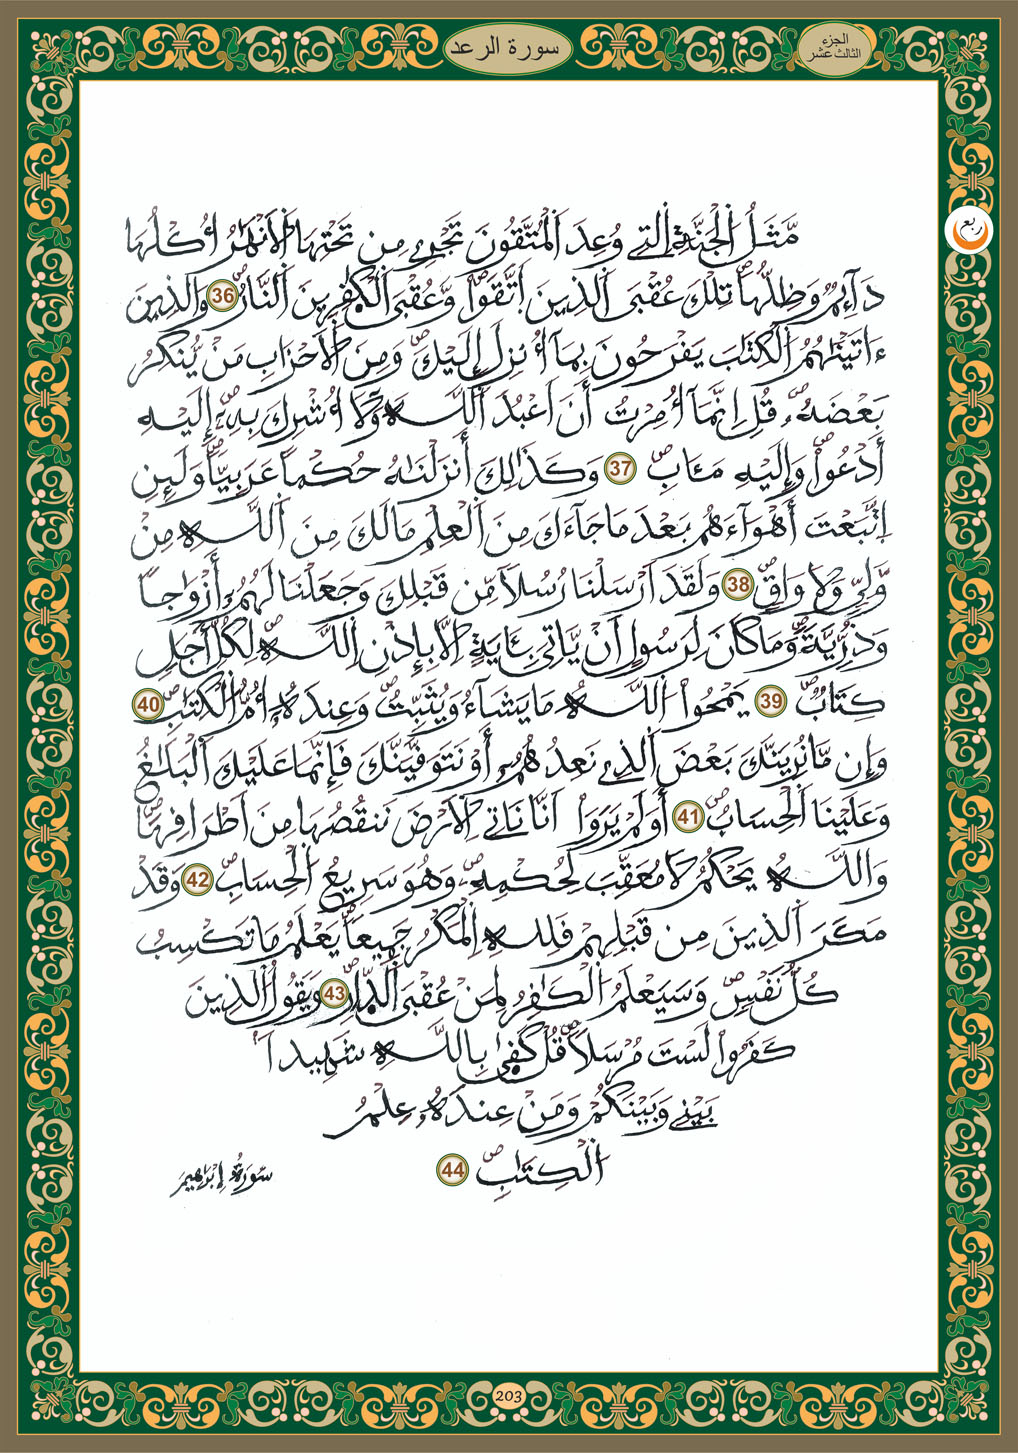 سورة الرعد
الجزء
الثالث عشر
ربع
مَّثَلُ الْجَنَّةِ الَّتِي وُعِدَ الْمُتَّقُونَ تَجْرِي مِن تَحْتِهَا الَانْهَٰرُ أُكْلُهَا
دَآئِمٌ وَظِلُّهَا تِلْكَ عُقْبَى الذِينَ اَتَّقَواْ وَّعُقْبَى الْكَٰفِرِينَ النَّارُ 36 وَالذِينَ
ءَاتَيْنَٰهُمُ الْكِتَٰبَ يَفْرَحُونَ بِمَآ أُنزِلَ إِلَيْكَ وَمِنَ الَاحْزَابِ مَنْ يُّنكِرُ
بَعْضَهُۥ قُلِ انَّمَآ أُمِرْتُ أَنَ اَعْبُدَ اللَّهَ وَلَآ أُشْرِكَ بِهِۦ إِلَيْهِ
أَدْعُواْ وَإِلَيْهِ مَـَٔابِ 37 وَكَذَٰلِكَ أَنزَلْنَٰهُ حُكْماً عَرَبِيّاً وَلَئِنِ
اِتَّبَعْتَ أَهْوَآءَهُم بَعْدَ مَا جَآءَكَ مِنَ الْعِلْمِ مَا لَكَ مِنَ اللَّهِ مِنْ
وَّلِيٍّ وَلَا وَاقٍ 38 وَلَقَدَ اَرْسَلْنَا رُسُلاً مِّن قَبْلِكَ وَجَعَلْنَا لَهُمُۥ أَزْوَٰجاً
وَذُرِّيَّةً وَمَا كَانَ لِرَسُولٍ اَنْ يَّاتِيَ بِـَٔايَةٍ اِلَّا بِإِذْنِ اللَّهِ لِكُلِّ أَجَلٍ
كِتَابٌ 39 يَمْحُواْ اللَّهُ مَا يَشَآءُ وَيُثَبِّتُ وَعِندَهُۥ أُمُّ الْكِتَٰبِ 40
وَإِن مَّا نُرِيَنَّكَ بَعْضَ الذِي نَعِدُهُمُۥ أَوْ نَتَوَفَّيَنَّكَ فَإِنَّمَا عَلَيْكَ الْبَلَٰغُ
وَعَلَيْنَا الْحِسَابُ 41 أَوَلَمْ يَرَوَاْ اَنَّا نَاتِي الَارْضَ نَنقُصُهَا مِنَ اَطْرَافِهَا
وَاللَّهُ يَحْكُمُ لَا مُعَقِّبَ لِحُكْمِهِۦ وَهُوَ سَرِيعُ الْحِسَابِ 42 وَقَدْ
مَكَرَ الذِينَ مِن قَبْلِهِمْ فَلِلهِ الْمَكْرُ جَمِيعاً يَعْلَمُ مَا تَكْسِبُ
كُلُّ نَفْسٍ وَسَيَعْلَمُ الْكَٰفِرُ لِمَنْ عُقْبَى الدِّارِ 43 وَيَقُولُ الذِينَ
كَفَرُواْ لَسْتَ مُرْسَلاً قُلْ كَفَىٰ بِاللَّهِ شَهِيداً
بَيْنِي وَبَيْنَكُمْ وَمَنْ عِندَهُۥ عِلْمُ
الْكِتَٰبِ 44
سُورَةُ إِبْرَاهِيمَ
203